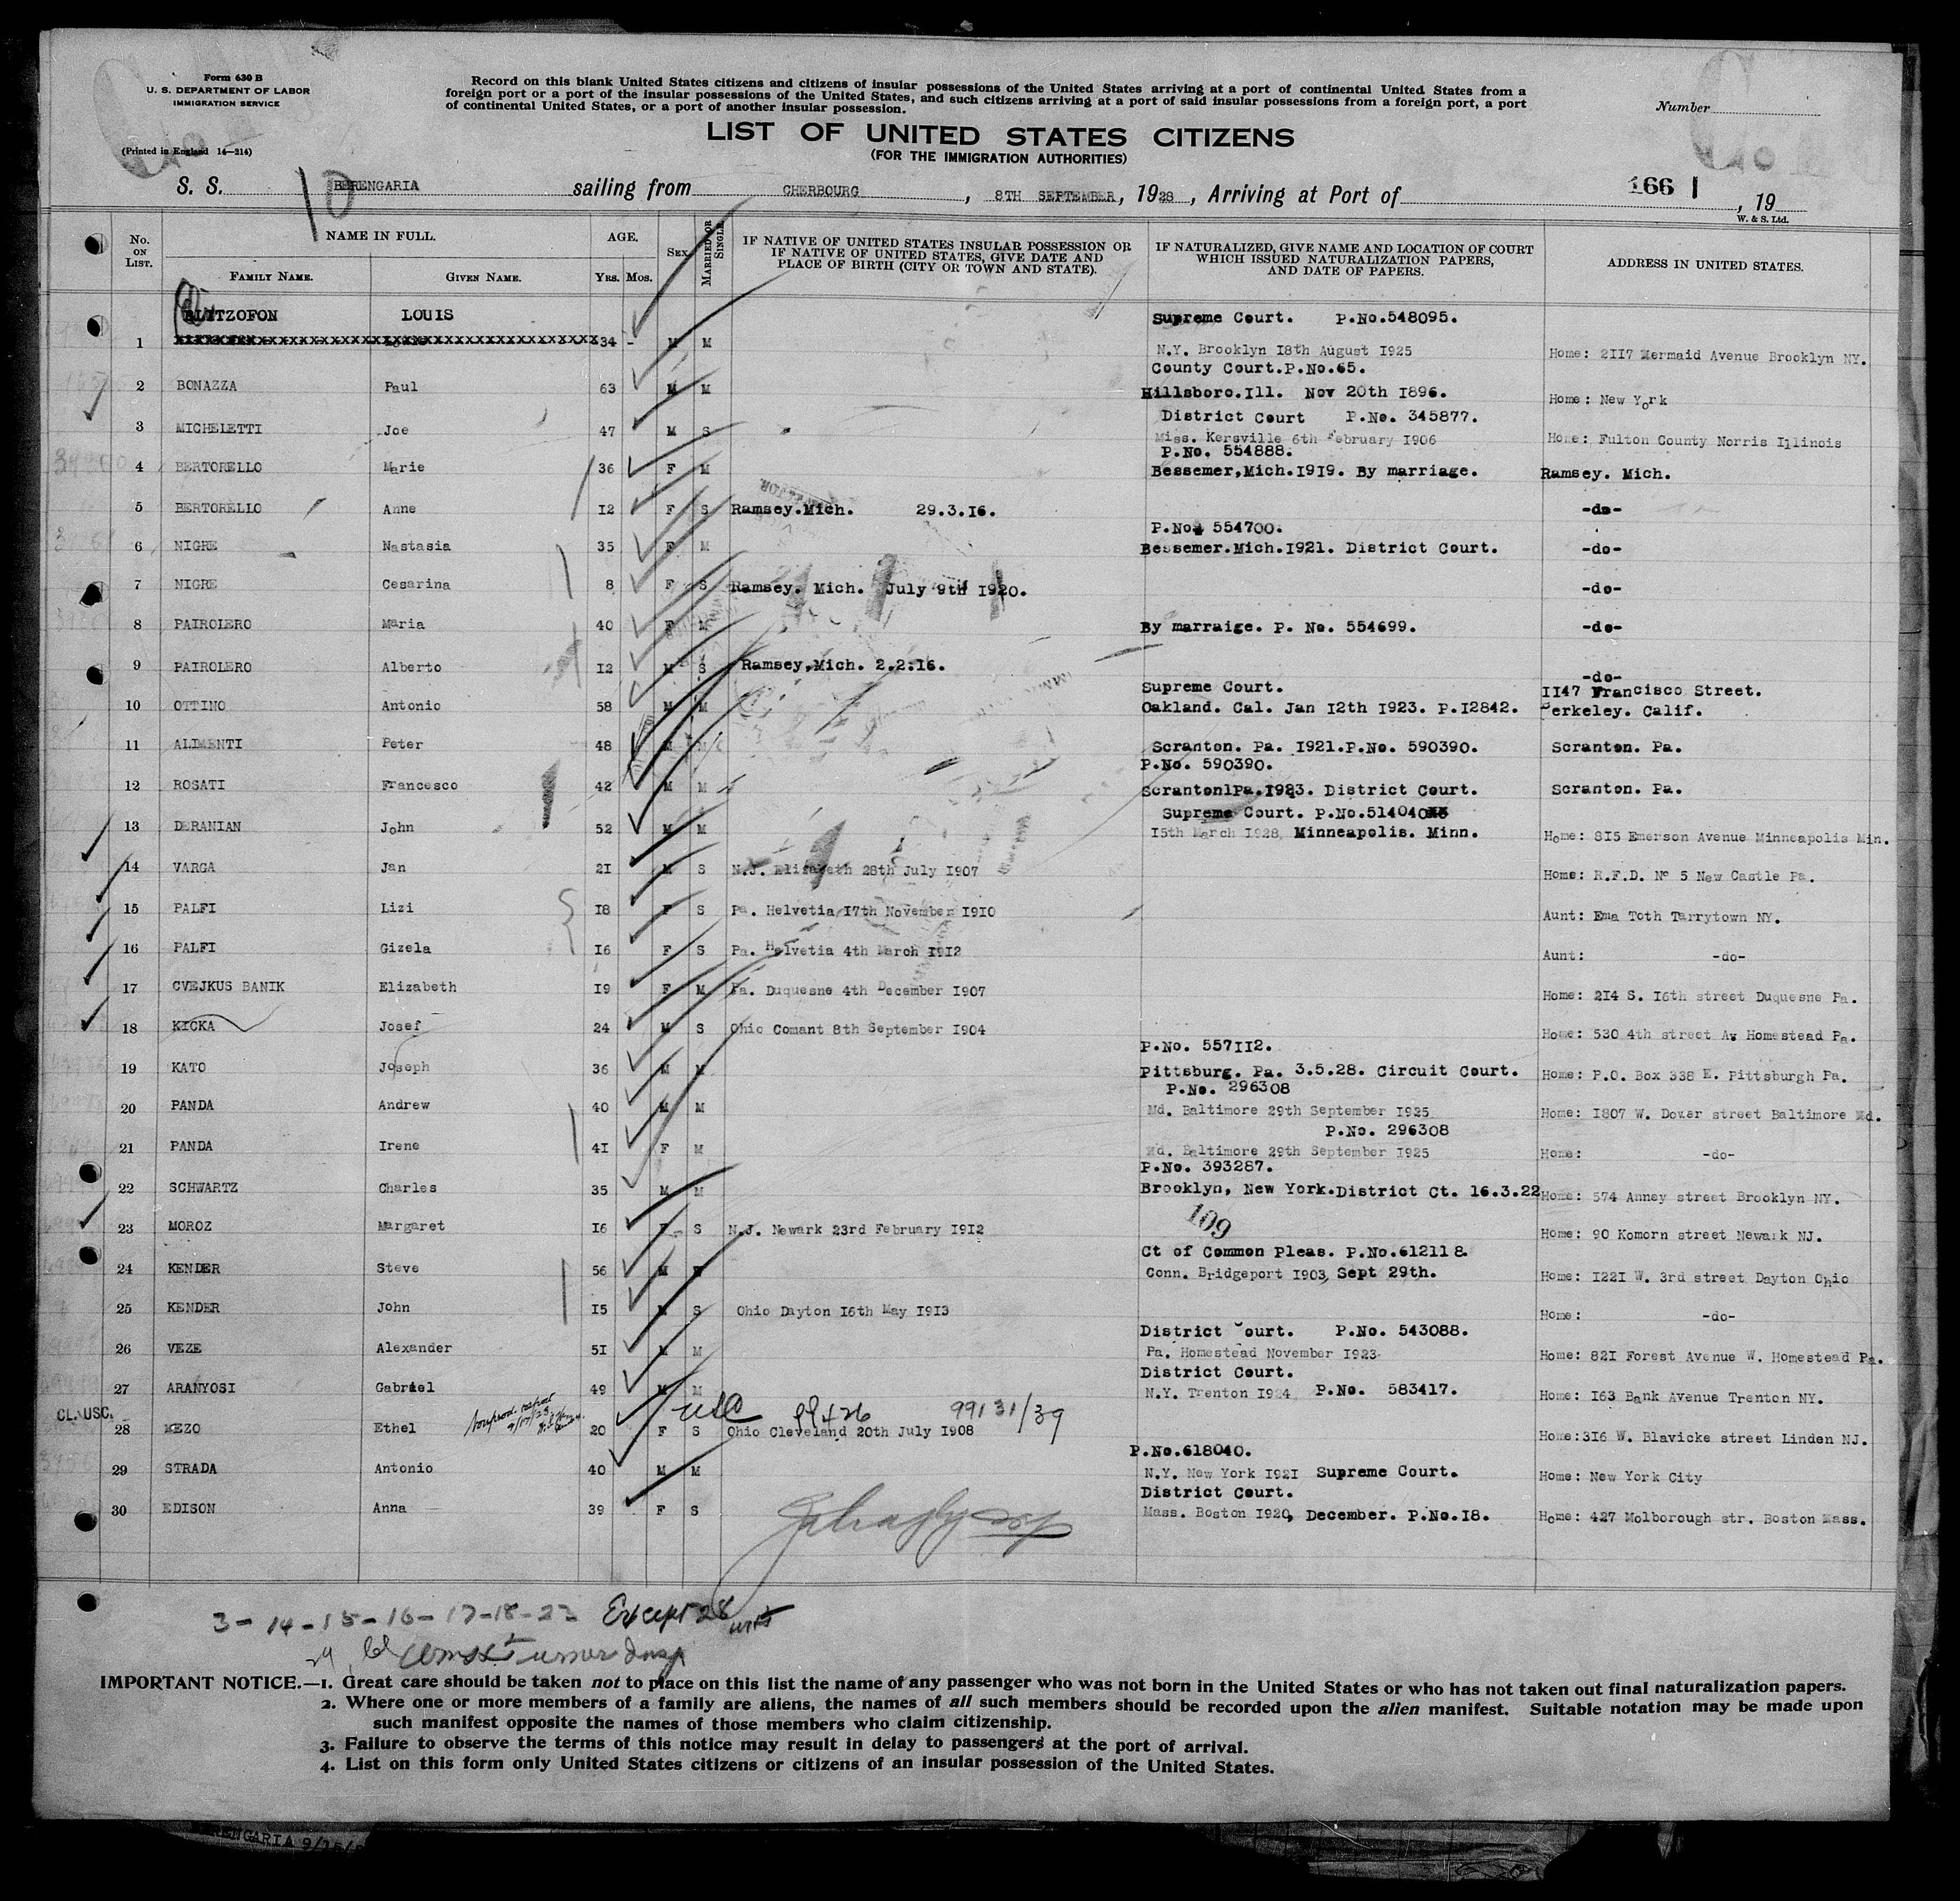 Form 630 B
U. S. DEPARTMENT OF LABOR
IMMIGRATION SERVICE
(Printed in England 14—214)
Record on this blank United States citizens and citizens of insular possessions of the United States arriving at a port of continental United States from a
foreign port or a port of the insular possessions of the United States, and such citizens arriving at a port of said insular possessions from a foreign port, a port
of continental United States, or a port of another insular possession.
Number
LIST OF UNITED STATES CITIZENS
(FOR THE IMMIGRATION AUTHORITIES)
S. S. BERENGARIA sailing from CHERBOURG, 8TH SEPTEMBER, 1928, Arriving at Port of 166 1, 19
10
W. & S. Ltd.
No. ON LIST. NAME IN FULL. FAMILY NAME. GIVEN NAME. AGE. YRS. MOS. SEX MARRIED OR SINGLE IF NATIVE OF UNITED STATES INSULAR POSSESSION OR IF NATIVE OF UNITED STATES, GIVE DATE AND PLACE OF BIRTH (CITY OR TOWN AND STATE). IF NATURALIZED, GIVE NAME AND LOCATION OF COURT WHICH ISSUED NATURALIZATION PAPERS, AND DATE OF PAPERS. ADDRESS IN UNITED STATES.
LOUIS Supreme Court. P.No.548095.
1 34 - M M N.Y. Brooklyn 18th August 1925 Home: 2117 Mermaid Avenue Brooklyn NY.
County Court.P.No.65.
2 BONAZZA Paul 63 M M Hillsboro.Ill. Nov 20th 1896. Home: New York
District Court P.No. 345877.
3 MICHELETTI Joe 47 M S Miss. Kersville 6th February 1906 Home: Fulton County Norris Illinois
P.No. 554888.
4 BERTORELLO Marie 36 F M Bessemer,Mich.1919. By marriage. Ramsey. Mich.
5 BERTORELLO Anne 12 F S Ramsey.Mich. 29.3.16. -do-
P.No. 554700.
6 NIGRE Nastasia 35 F M Bessemer.Mich.1921. District Court. -do-
7 NIGRE Cesarina 8 F S Ramsey. Mich. July 9th 1920. -do-
8 PAIROLERO Maria 40 F M By marraige. P. No. 554699. -do-
9 PAIROLERO Alberto 12 M S Ramsey,Mich. 2.2.16. -do-
Supreme Court. 1147 Francisco Street.
10 OTTINO Antonio 58 M M Oakland. Cal. Jan 12th 1923. P.12842. Berkeley. Calif.
11 ALIMENTI Peter 48 M M Scranton. Pa. 1921.P.No. 590390. Scranton. Pa.
P.No. 590390.
12 ROSATI Francesco 42 M M Scranton1Pa.1923. District Court. Scranton. Pa.
Supreme Court. P.No.514040
13 DERANIAN John 52 M M 15th March 1928, Minneapolis. Minn. Home: 815 Emerson Avenue Minneapolis Min.
14 VARGA Jan 21 M S N.J. Elizabeth 28th July 1907 Home: R.F.D. No 5 New Castle Pa.
15 PALFI Lizi 18 F S Pa. Helvetia 17th November 1910 Aunt: Ema Toth Tarrytown NY.
16 PALFI Gizela 16 F S Pa. Helvetia 4th March 1912 Aunt: -do-
17 CVEJKUS BANIK Elizabeth 19 F M Pa. Duquesne 4th December 1907 Home: 214 S. 16th street Duquesne Pa.
18 KICKA Josef 24 M S Ohio Comant 8th September 1904 Home: 530 4th street Av Homestead Pa.
P.No. 557112.
19 KATO Joseph 36 M M Pittsburg. Pa. 3.5.28. Circuit Court. Home: P.O. Box 338 E. Pittsburgh Pa.
P.No. 296308
20 PANDA Andrew 40 M M Md. Baltimore 29th September 1925 Home: 1807 W. Dower street Baltimore Md.
P.No. 296308
21 PANDA Irene 41 F M Md. Baltimore 29th September 1925 Home: -do-
P.No. 393287.
22 SCHWARTZ Charles 35 M M Brooklyn, New York.District Ct. 16.3.22 Home: 574 Anney street Brooklyn NY.
23 MOROZ Margaret 16 F S N.J. Newark 23rd February 1912 109 Home: 90 Komorn street Newark NJ.
Ct of Common Pleas. P.No.612118.
24 KENDER Steve 56 M Conn. Bridgeport 1903, Sept 29th. Home: 1221 W. 3rd street Dayton Ohio
25 KENDER John 15 M S Ohio Dayton 16th May 1913 Home: -do-
District Court. P.No. 543088.
26 VEZE Alexander 51 M M Pa. Homestead November 1923 Home: 821 Forest Avenue W. Homestead Pa.
District Court.
27 ARANYOSI Gabriel 49 M M N.Y. Trenton 1924 P.No. 583417. Home: 163 Bank Avenue Trenton NY.
CL.USC. USC 99426 99131/39
28 MEZO Ethel 20 F S Ohio Cleveland 20th July 1908 Home:316 W. Blavicke street Linden NJ.
P.No.618040.
29 STRADA Antonio 40 M M N.Y. New York 1921 Supreme Court. Home: New York City
District Court.
30 EDISON Anna 39 F S Mass. Boston 1920, December. P.No.18. Home: 427 Molborough str. Boston Mass.
3-14-15-16-17-18-23 Except 28
IMPORTANT NOTICE.—1. Great care should be taken not to place on this list the name of any passenger who was not born in the United States or who has not taken out final naturalization papers.
2. Where one or more members of a family are aliens, the names of all such members should be recorded upon the alien manifest. Suitable notation may be made upon
such manifest opposite the names of those members who claim citizenship.
3. Failure to observe the terms of this notice may result in delay to passengers at the port of arrival.
4. List on this form only United States citizens or citizens of an insular possession of the United States.